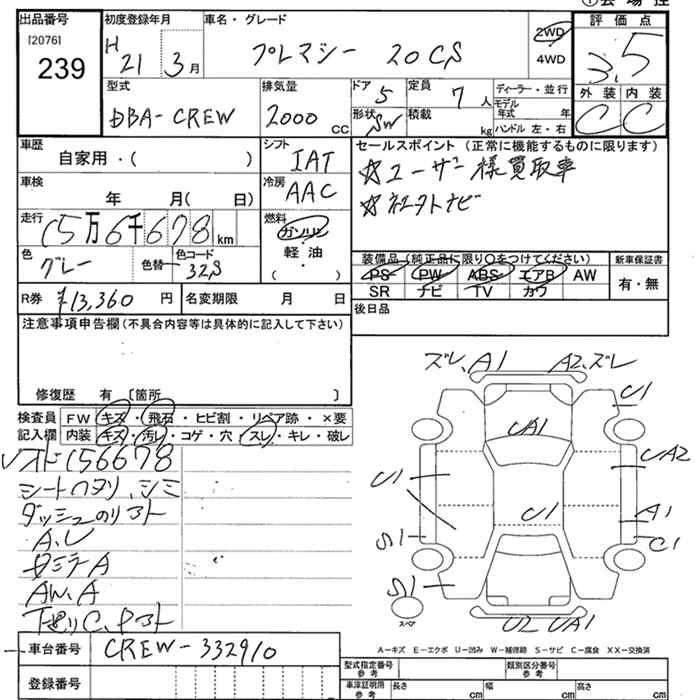 出品番号
[2076]
239
初度登録年月
H 21 3月
車名・グレード
プレマシー 20CS
2WD
4WD
評価点
3.5
外装 内装
C C
型式
DBA-CREW
排気量
2000 CC
ドア 5
形状 SW
定員 7人
積載 kg
ディーラー・並行
モデル年式 年
ハンドル 左・右
車歴
自家用・( )
シフト IAT
車検
年 月( 日)
冷房 AAC
走行
15万6千678km
燃料
ガソリン
軽油
( ・ )
色 グレー
色替
色コード 32S
セールスポイント (正常に機能するものに限ります)
☆ユーザー様買取車
☆社外ナビ
装備品(純正品に限り○をつけてください)
PS PW ABS エアB AW
SR ナビ TV カワ
新車保証書
有・無
後日品
R券 ¥13,360円
名変期限 月 日
注意事項申告欄(不具合内容等は具体的に記入して下さい)
修復歴 有 〔箇所 〕
検査員記入欄
FW キズ・飛石・ヒビ割・リペア跡・×要
内装 キズ・汚レ・コゲ・穴・スレ・キレ・破レ
156678
シートヘタリ、シミ
A.U
AW.A
ズレ、A1 A2、ズレ
U1
UA1
UA2
U1
U1
A1
S1
C1
S1
スペア
U2 UA1
A-キズ E-エクボ U-凹み W-補修跡 S-サビ C-腐食 XX-交換済
車台番号 CREW-332910
登録番号
型式指定番号 参考
類別区分番号 参考
車津証明用 参考
長さ cm
幅 cm
高さ cm